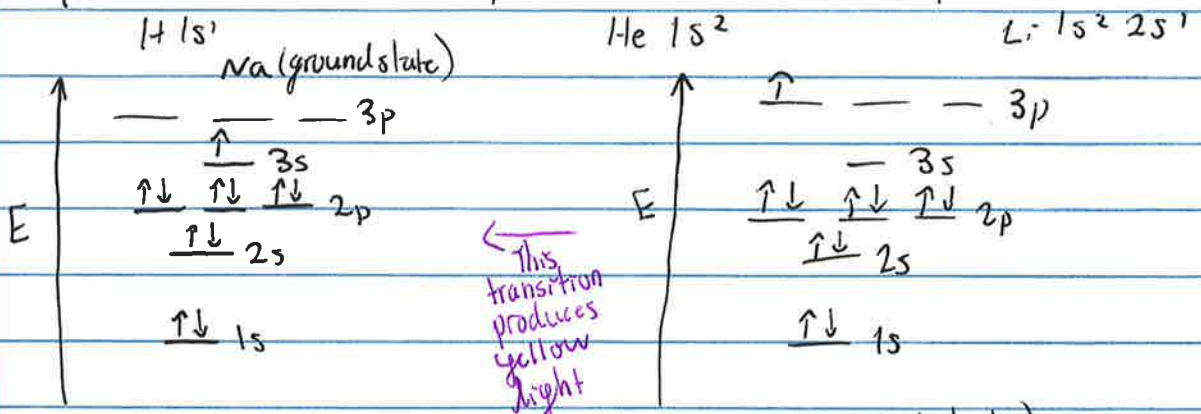 H 1s¹ He 1s² Li 1s² 2s¹
Na (ground state)
3p
↑ 3s
↑↓ ↑↓ ↑↓ 2p
E
↑↓ 2s
↑↓ 1s
This
transition
produces
yellow
light
↑ 3p
3s
↑↓ ↑↓ ↑↓ 2p
E
↑↓ 2s
↑↓ 1s